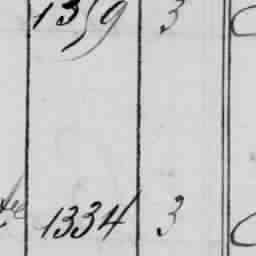 1359 3
1334 3